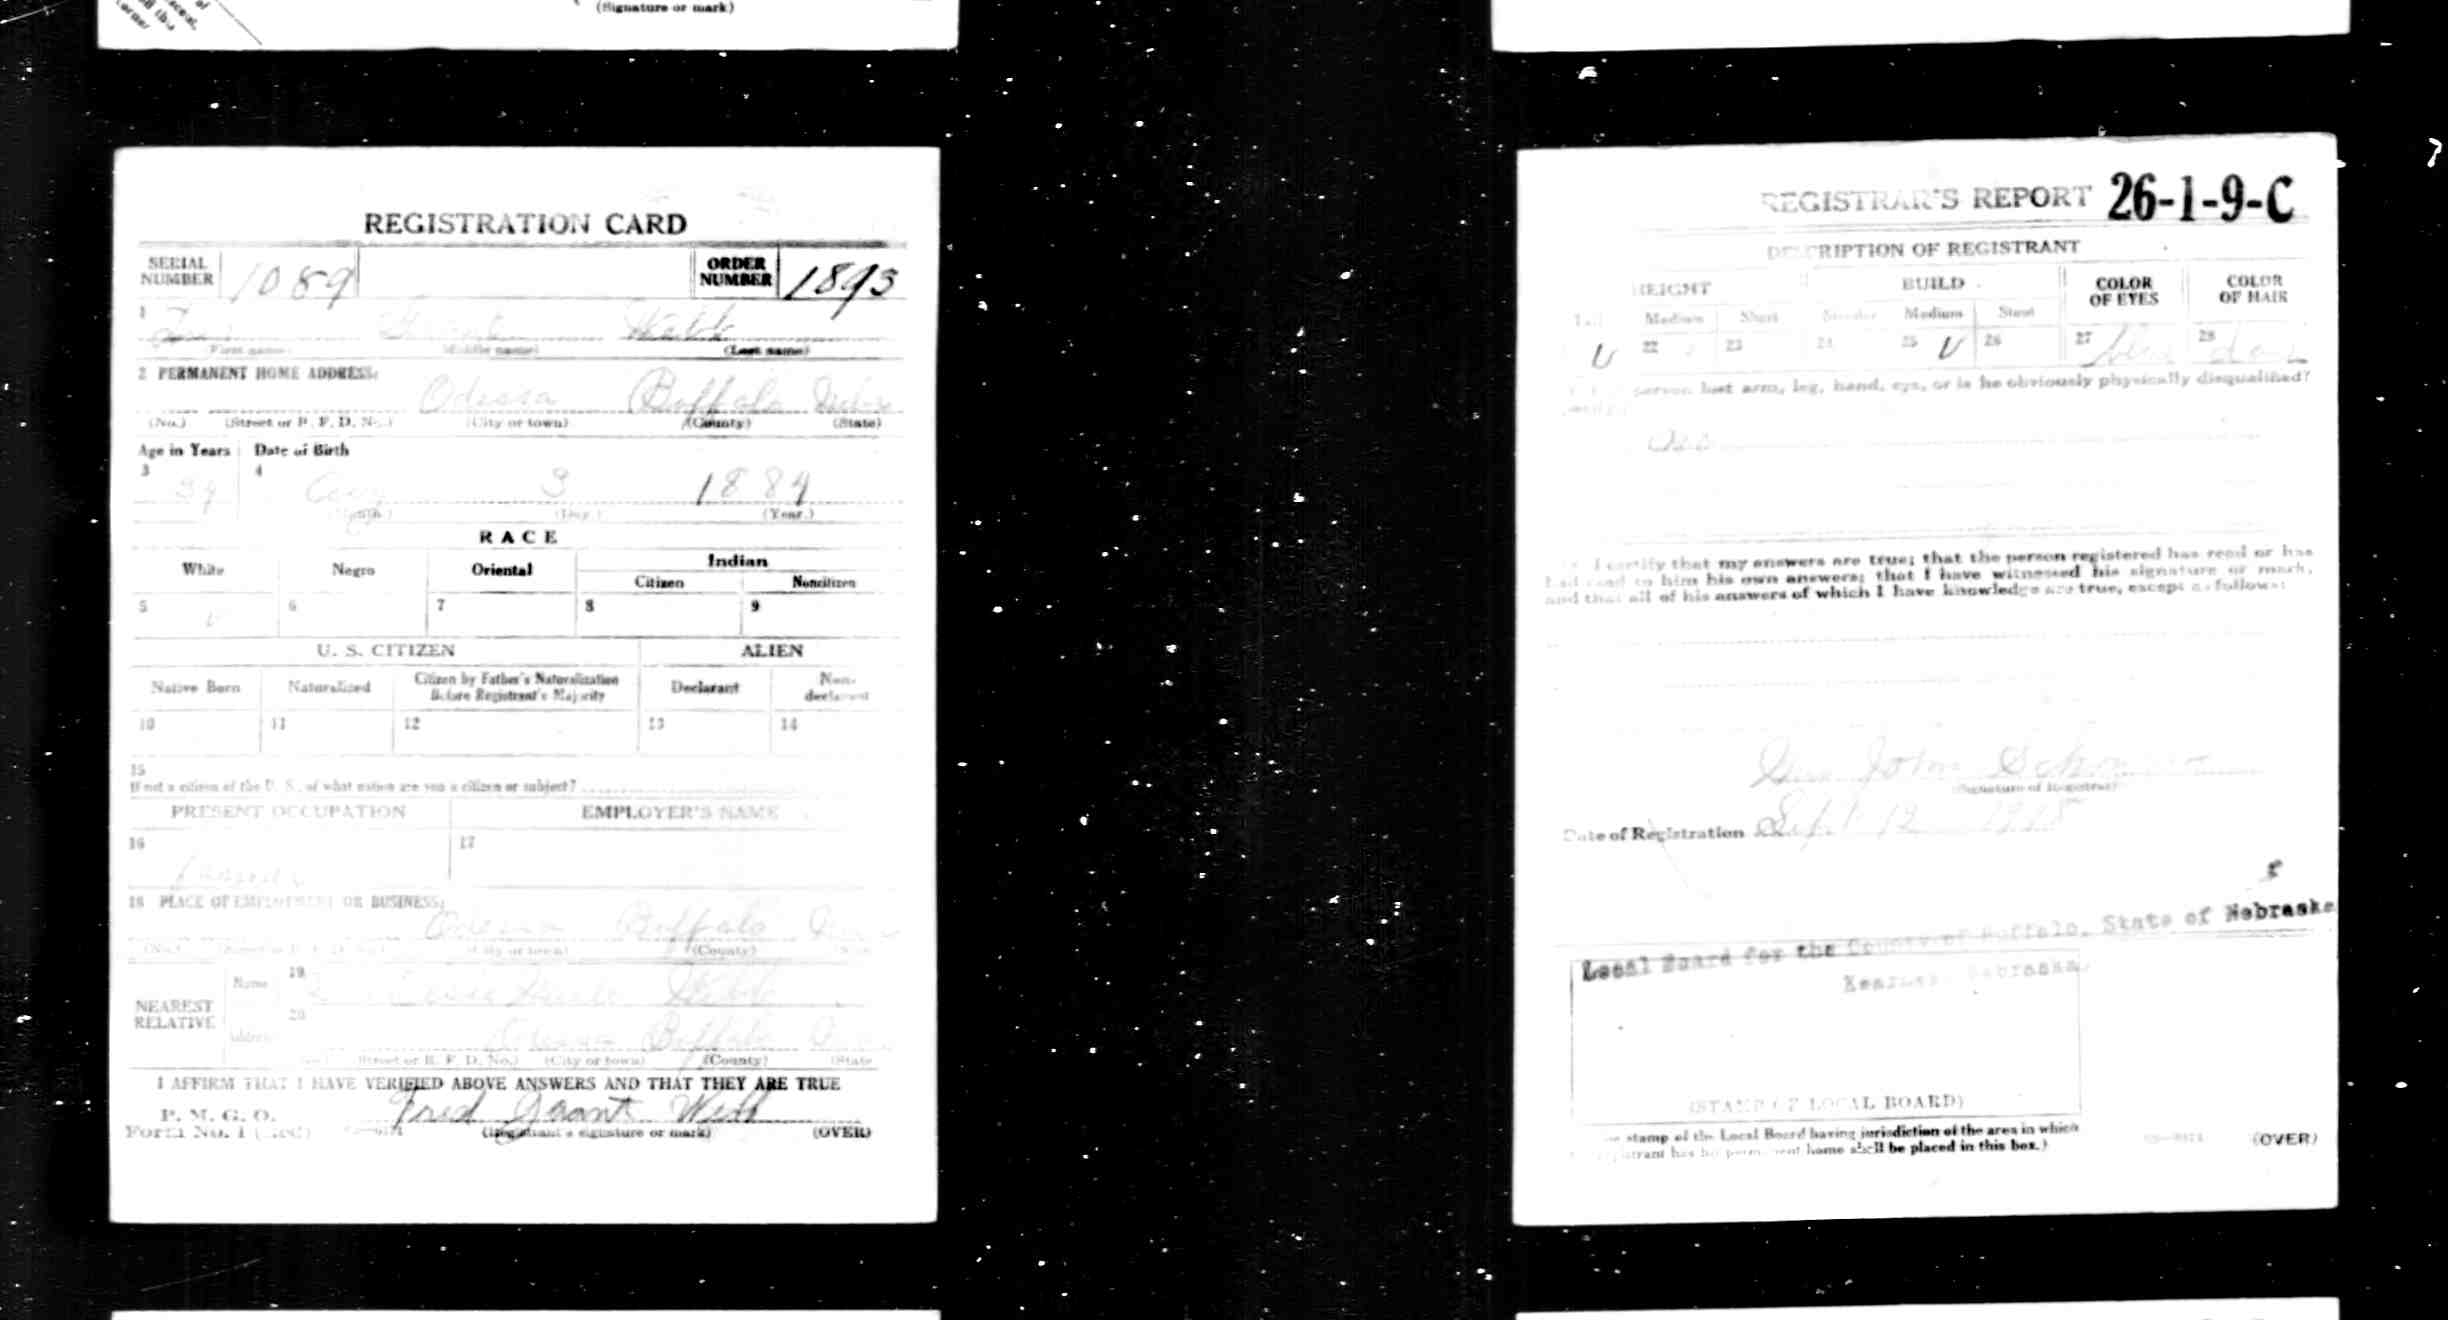 (Signature or mark)
REGISTRATION CARD
SERIAL NUMBER 1089 ORDER NUMBER 1893
1 Grant Webb
(First name) (Middle name) (Last name)
2 PERMANENT HOME ADDRESS:
Odessa Buffalo Nebr
(No.) (Street or R. F. D. No.) (City or town) (County) (State)
Age in Years Date of Birth
3 4
34 Aug 3 1884
(Month.) (Day.) (Year.)
RACE
White Negro Oriental Indian
Citizen Noncitizen
5 6 7 8 9
U. S. CITIZEN ALIEN
Native Born Naturalized Citizen by Father's Naturalization Before Registrant's Majority Declarant Non-declarant
10 11 12 13 14
15
If not a citizen of the U. S., of what nation are you a citizen or subject?
PRESENT OCCUPATION EMPLOYER'S NAME
16 17
Farmer
18 PLACE OF EMPLOYMENT OR BUSINESS:
Odessa Buffalo
(No.) (Street or R. F. D. No.) (City or town) (County) (State)
NEAREST RELATIVE
Name 19 Webb
Address 20 Odessa Buffalo
(No.) (Street or R. F. D. No.) (City or town) (County) (State
I AFFIRM THAT I HAVE VERIFIED ABOVE ANSWERS AND THAT THEY ARE TRUE
P. M. G. O.
Form No. 1 (Red) Fred Grant Webb
(Registrant's signature or mark) (OVER)
REGISTRAR'S REPORT 26-1-9-C
DESCRIPTION OF REGISTRANT
HEIGHT BUILD COLOR OF EYES COLOR OF HAIR
Tall Medium Short Slender Medium Stout
22 23 24 25 26 27 28
person lost arm, leg, hand, eye, or is he obviously physically disqualified?
I certify that my answers are true; that the person registered has read or has
had read to him his own answers; that I have witnessed his signature or mark,
and that all of his answers of which I have knowledge are true, except as follows:
John
(Signature of Registrar)
Date of Registration Sept 12 1918
Local Board for the County of Buffalo, State of Nebraska
Kearney Nebraska.
(STAMP OF LOCAL BOARD)
stamp of the Local Board having jurisdiction of the area in which
registrant has his permanent home shall be placed in this box.)
(OVER)